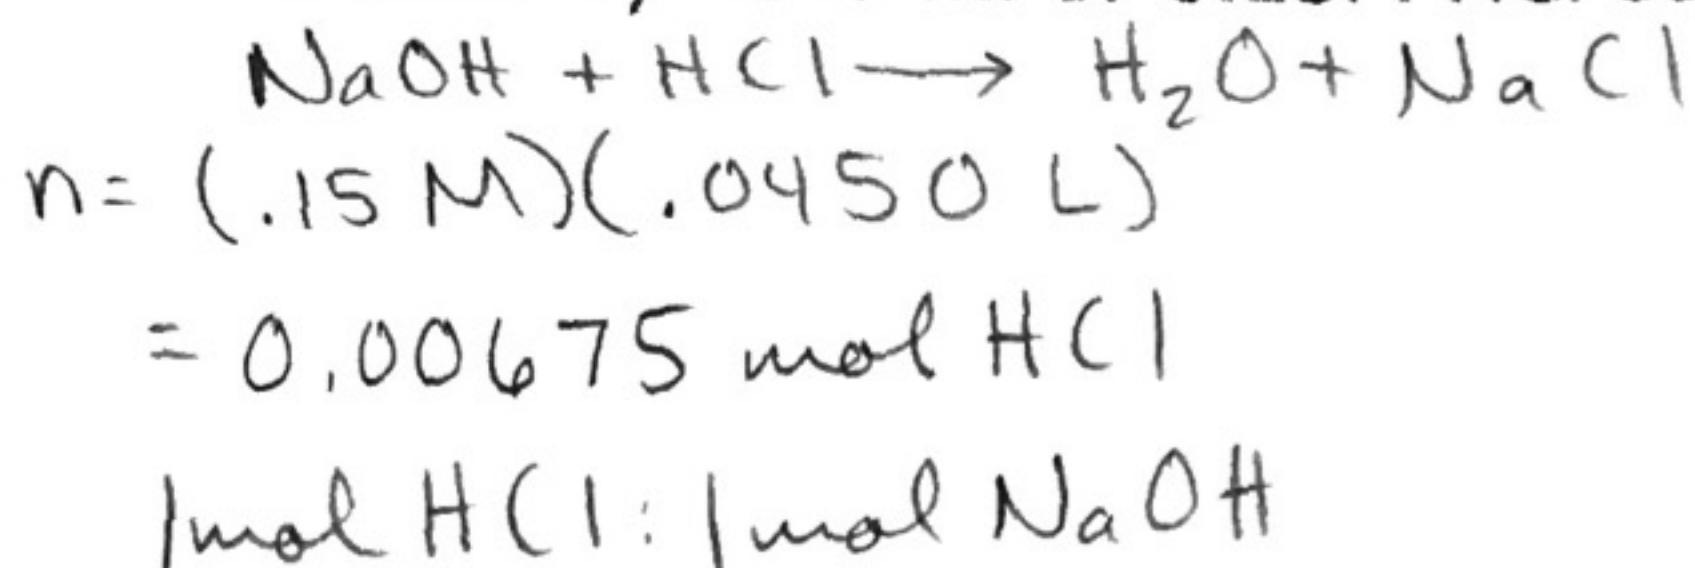 NaOH + HCl → H₂O + NaCl
n= (.15 M)(.0450 L)
= 0.00675 mol HCl
1mol HCl : 1mol NaOH